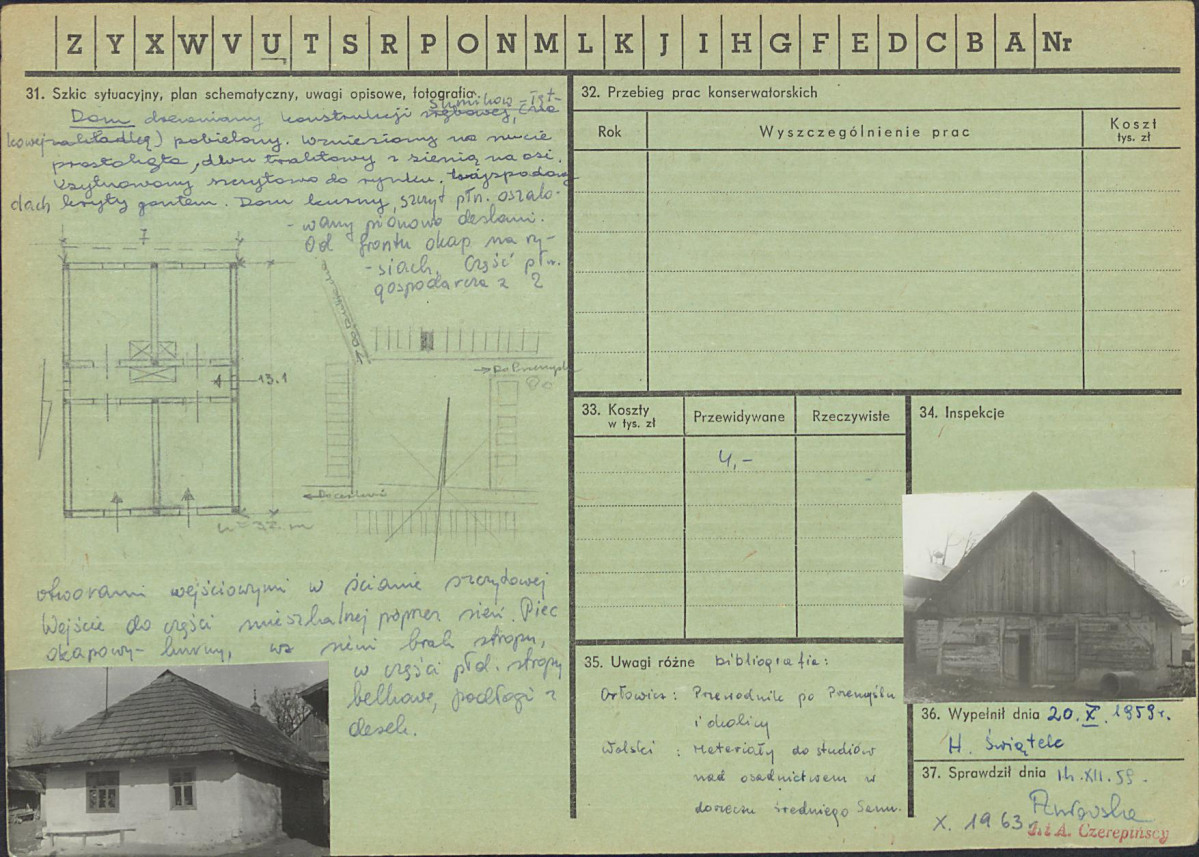 Z Y X W V U T S R P O N M L K J I H G F E D C B A Nr
31. Szkic sytuacyjny, plan schematyczny, uwagi opisowe, fotografia
Dom drewniany konstrukcji
pobielany. Wzniesiony na rzucie
prostokąta, dwu traktowy z sienią na osi.
Usytuowany szczytowo do rynku,
dach kryty gontem. Dom kurny, szczyt płn. oszalo-
wany pionowo deskami.
Od frontu okap na ry-
-siach. Część płn.
gospodarcza z 2
7
13.1
otworami wejściowymi w ścianie szczytowej
Wejście do części mieszkalnej poprzez sień. Piec
okapowy- kurny, we sieni brak stropu,
w części płd. stropy
belkowe, podłogi z
desek.
32. Przebieg prac konserwatorskich
Rok
Wyszczególnienie prac
Koszt
tys. zł
33. Koszty
w tys. zł
Przewidywane
Rzeczywiste
4,-
34. Inspekcje
35. Uwagi różne bibliografia:
Orłowicz: Przewodnik po Przemyślu
i okolicy
Wolski : Materiały do studiów
nad osadnictwem w
dorzeczu średniego Sanu.
36. Wypełnił dnia 20. X. 1959 r.
H. Świątek
37. Sprawdził dnia 14.XII.59.
X. 1963
A. Czerepińscy